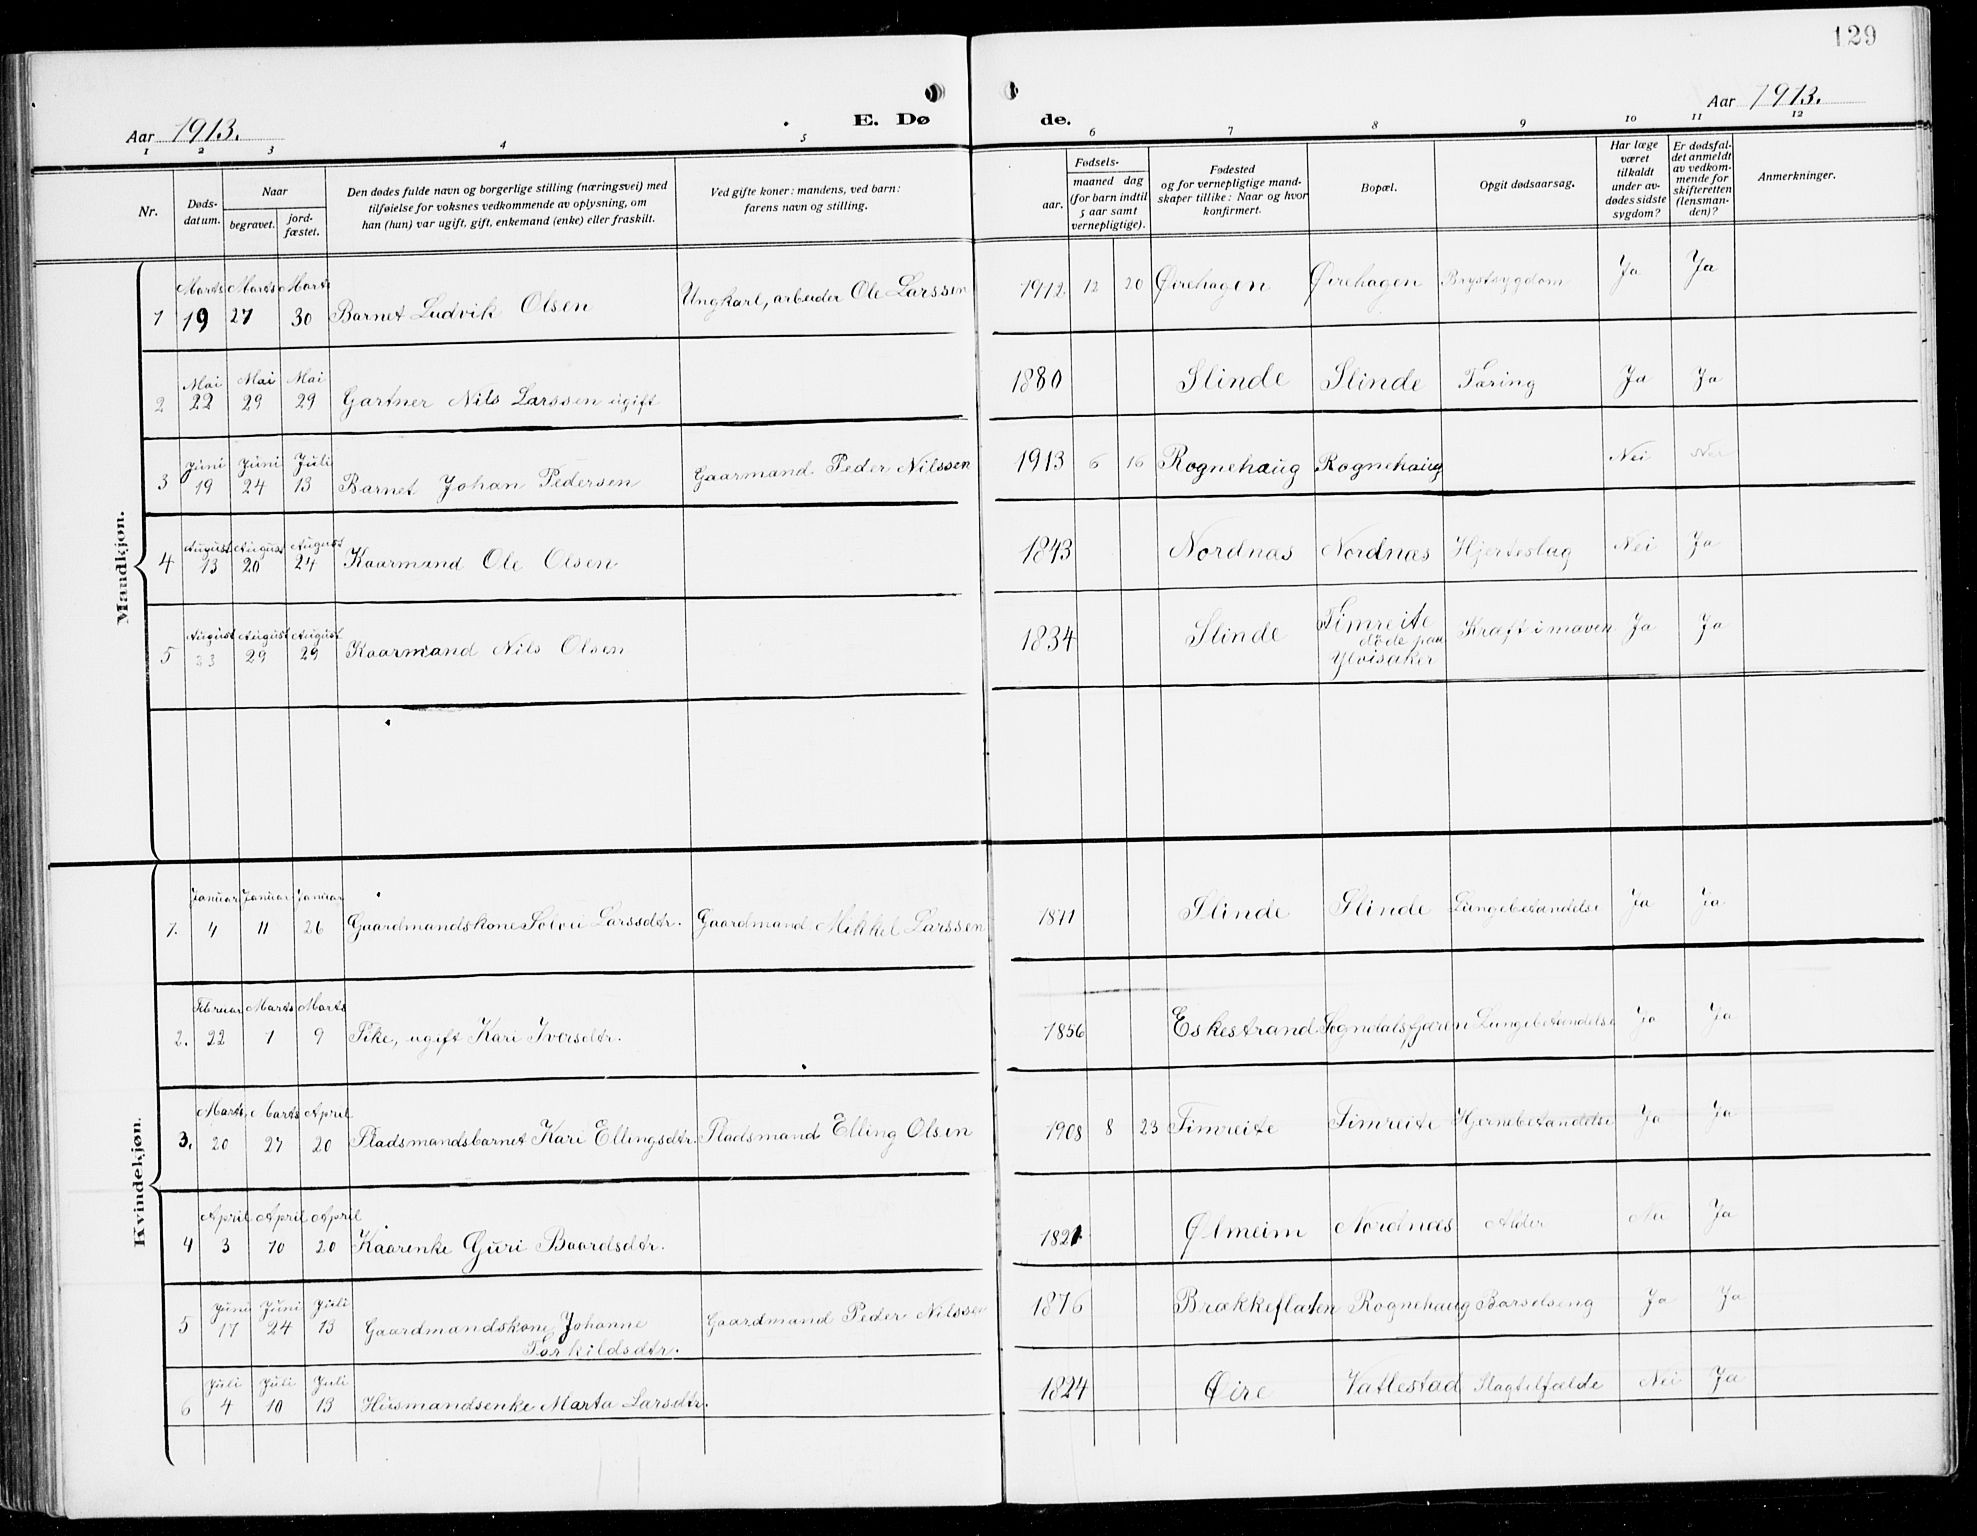 129
Aar 1913.
E. Dø
de.
Aar 1913.
1 2 3 4 5 6 7 8 9 10 11 12
Nr.
Døds-
datum.
Naar
begravet.
jord-
fæstet.
Den dødes fulde navn og borgerlige stilling (næringsvei) med
tilføielse for voksnes vedkommende av oplysning, om
han (hun) var ugift, gift, enkemand (enke) eller fraskilt.
Ved gifte koner: mandens, ved barn:
farens navn og stilling.
Fødsels-
aar.
maaned dag
(for barn indtil
5 aar samt
vernepligtige).
Fødested
og for vernepligtige mand-
skaper tillike: Naar og hvor
konfirmert.
Bopæl.
Opgit dødsaarsag.
Har læge
været
tilkaldt
under av-
dødes sidste
sygdom?
Er dødsfal-
det anmeldt
av vedkom-
mende for
skifteretten
(lensman-
den)?
Anmerkninger.
Mandkjøn.
Marts Marts Marts
1 19 27 30 Barnet Ludvik Olsen Ungkarl, arbeider Ole Larssen 1912 12 20 Øirehagen Øirehagen Brystsygdom Ja Ja
Mai Mai Mai
2 22 29 29 Gartner Nils Larssen ugift 1880 Slinde Slinde Tæring Ja Ja
Juni Juni Juli
3 19 24 13 Barnet Johan Pedersen Gaarmand Peder Nilssen 1913 6 16 Rognehaug Rognehaug Nei Nei
August August August
4 13 20 24 Kaarmand Ole Olsen 1843 Nordnæs Nordnæs Hjerteslag Nei Ja
August August August
5 23 29 29 Kaarmand Nils Olsen 1834 Slinde Timreite Kræft i maven Ja Ja
døde paa
Ylvisaker
Kvindekjøn.
Januar Januar Januar
1. 4 11 26 Gaardmandskone Sølvei Larssdtr. Gaardmand Mikkel Larssen 1871 Slinde Slinde Lungebetændelse Ja Ja
Februar Marts Marts
2. 22 1 9 Pike, ugift Kari Iversdtr. 1856 Eskestrand Sogndalsfjæren Lungebetændelse Ja Ja
Marts Marts April
3. 20 27 20 Pladsmandsbarnet Kari Ellingsdtr. Pladsmand Elling Olsen 1908 8 23 Timreite Timreite Hjernebetændelse Ja Ja
April April April
4 3 10 20 Kaarenke Guri Baardsdtr. 1821 Ølmeim Nordnæs Alder Nei Ja
Juni Juni Juli
5 17 24 13 Gaardmandskone Johanne Gaardmand Peder Nilssen 1876 Brækkeflaten Rognehaug Barselseng Ja Ja
Torkildsdtr.
Juli Juli Juli
6 4 10 13 Husmandsenke Marta Larsdtr. 1824 Øire Vatlestad Slagtilfælde Nei Ja